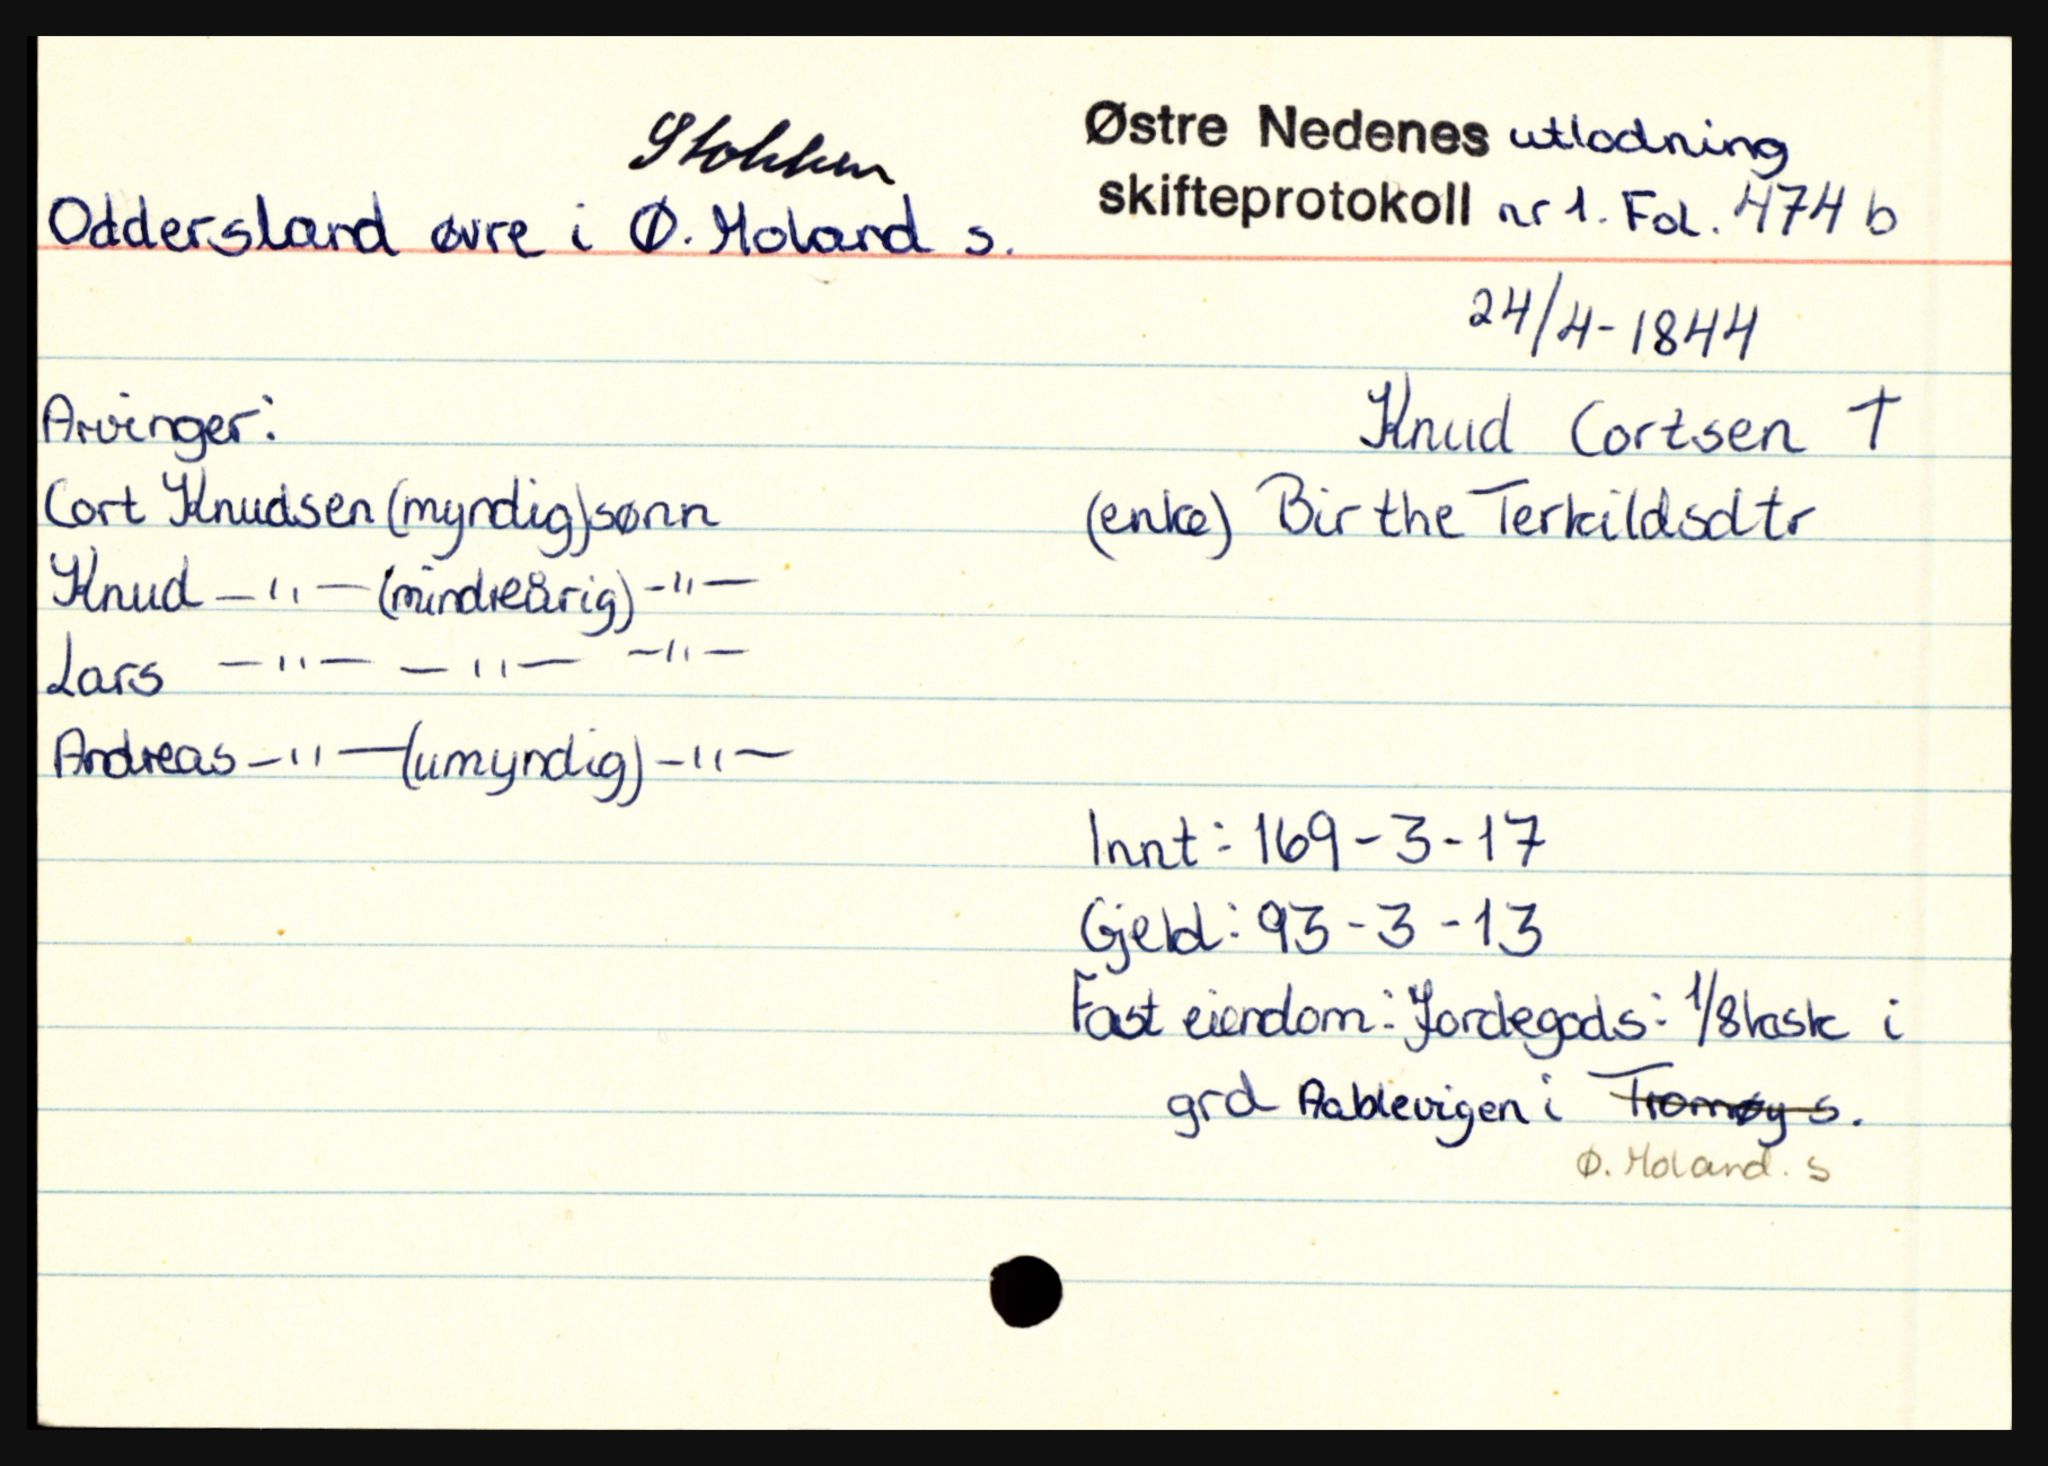 Stokken
Oddersland øvre i Ø. Moland s.
Østre Nedenes utlodning
skifteprotokoll nr 1. Fol. 474 b
24/4-1844
Arvinger:
Knud Cortsen †
Cort Knudsen (myndig) sønn
(enke) Birthe Terkildsdtr
Knud —"— (mindreårig) —"—
Lars —"— —"— —"—
Andreas —"— (umyndig) —"—
Innt: 169-3-17
Gjeld: 93-3-13
Fast eiendom: Jordegods: 1/8 kask i
grd Aablevigen i Tromøy s.
Ø. Moland. s